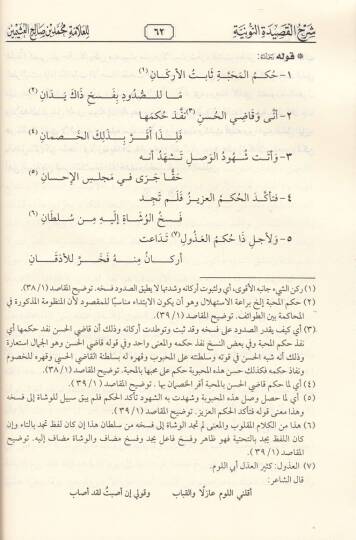 شرح القصيدة النونية ٦٢ للعلامة محمد بن صالح العثيمين
* قوله رحمه الله:
١- حُكمُ المَحبَّةِ ثابتُ الأركَانِ (١)
مَا للصُّدُودِ بِفَسْخِ ذَاكَ يَدَانِ (٢)
٢- أنَّى وَقَاضِي الحُسنِ (٣) نفَّذَ حُكمَها
فَلِذَا أقَرَّ بِذَلِكَ الخَصمانِ (٤)
٣- وَأتَت شُهُودُ الوَصلِ تَشهَدُ أنه
حَقًّا جَرَى في مَجلِسِ الإحسانِ (٥)
٤- فتأكَّدَ الحُكمُ العزيزُ فَلَم تَجِد
فَسخُ الوُشَاةِ إلَيهِ مِن سُلطَانِ (٦)
٥- وَلأجلِ ذَا حُكمُ العَذُولِ (٧) تَدَاعت
أركانُ مِنهُ فَخَرَّ للأذقَانِ
(١) ركن الشيء جانبه الأقوى، أي ولثبوت أركانه وشدتها لا يطيق الصدود فسخه. توضيح المقاصد (١/ ٣٨).
(٢) حكم المحبة إلخ براعة الاستهلال وهو أن يكون الابتداء مناسبًا للمقصود لأن المنظومة المذكورة في
المحاكمة بين الطوائف. توضيح المقاصد (١/ ٣٨).
(٣) أي كيف يقدر الصدود على فسخه وقد ثبت وتوطدت أركانه وذلك أن قاضي الحسن نفذ حكمها أي
نفذ حكم المحبة وفي بعض النسخ نفذ حكمه والمعنى واحد وفي قوله قاضي الحسن وهو الجمال استعارة
وذلك أنه شبه الحسن في قوته وسلطته على المحبوب وقهره له بسلطة القاضي وقهره للخصوم
ونفاذ حكمه فكذلك حسن هذه المحبوبة حكم على محبها بالمحبة. توضيح المقاصد (١/ ٣٨).
(٤) أي لما حكم قاضي الحسن بالمحبة أقر الخصمان بها. توضيح المقاصد (١/ ٣٩).
(٥) أي لما حصل وصل هذه المحبوبة وشهدت به الشهود تأكد الحكم فلم يبق سبيل للوشاة إلى فسخه
وهذا معنى قوله فتأكد الحكم العزيز. توضيح المقاصد (١/ ٣٩).
(٦) هذا من الكلام المقلوب والمعنى لم تجد الوشاة إلى فسخه من سلطان هذا إن كان لفظ تجد بالتاء وإن
كان اللفظ يجد بالتحتية فهو ظاهر وفسخ فاعل يجد وفسخ مضاف والوشاة مضاف إليه. توضيح
المقاصد (١/ ٣٩).
(٧) العذول: كثير العذل أي اللوم.
قال الشاعر:
أقلي اللوم عاذلًا والقباب وقولي إن أصبتُ لقد أصاب